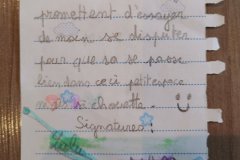 promettent d'essayer
de moin se disputer
pour que sa se passe
bien dans ce petit espace
mais si chouette.
Signatures: